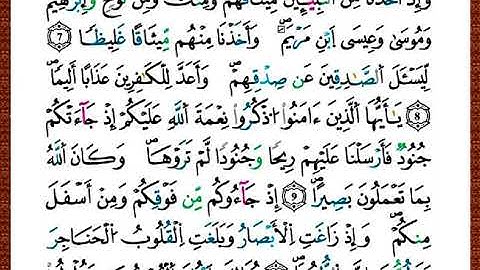 وَإِذْ أَخَذْنَا مِنَ ٱلنَّبِيِّـۧنَ مِيثَاقَهُمْ وَمِنكَ وَمِن نُّوحٍ وَإِبْرَٰهِيمَ
وَمُوسَىٰ وَعِيسَى ٱبْنِ مَرْيَمَ ۖ وَأَخَذْنَا مِنْهُم مِّيثَٰقًا غَلِيظًا ٧
لِّيَسْـَٔلَ ٱلصَّٰدِقِينَ عَن صِدْقِهِمْ ۚ وَأَعَدَّ لِلْكَٰفِرِينَ عَذَابًا أَلِيمًا
٨ يَٰٓأَيُّهَا ٱلَّذِينَ ءَامَنُوا۟ ٱذْكُرُوا۟ نِعْمَةَ ٱللَّهِ عَلَيْكُمْ إِذْ جَآءَتْكُمْ
جُنُودٌ فَأَرْسَلْنَا عَلَيْهِمْ رِيحًا وَجُنُودًا لَّمْ تَرَوْهَا ۚ وَكَانَ ٱللَّهُ
بِمَا تَعْمَلُونَ بَصِيرًا ٩ إِذْ جَآءُوكُم مِّن فَوْقِكُمْ وَمِنْ أَسْفَلَ
مِنكُمْ وَإِذْ زَاغَتِ ٱلْأَبْصَٰرُ وَبَلَغَتِ ٱلْقُلُوبُ ٱلْحَنَاجِرَ